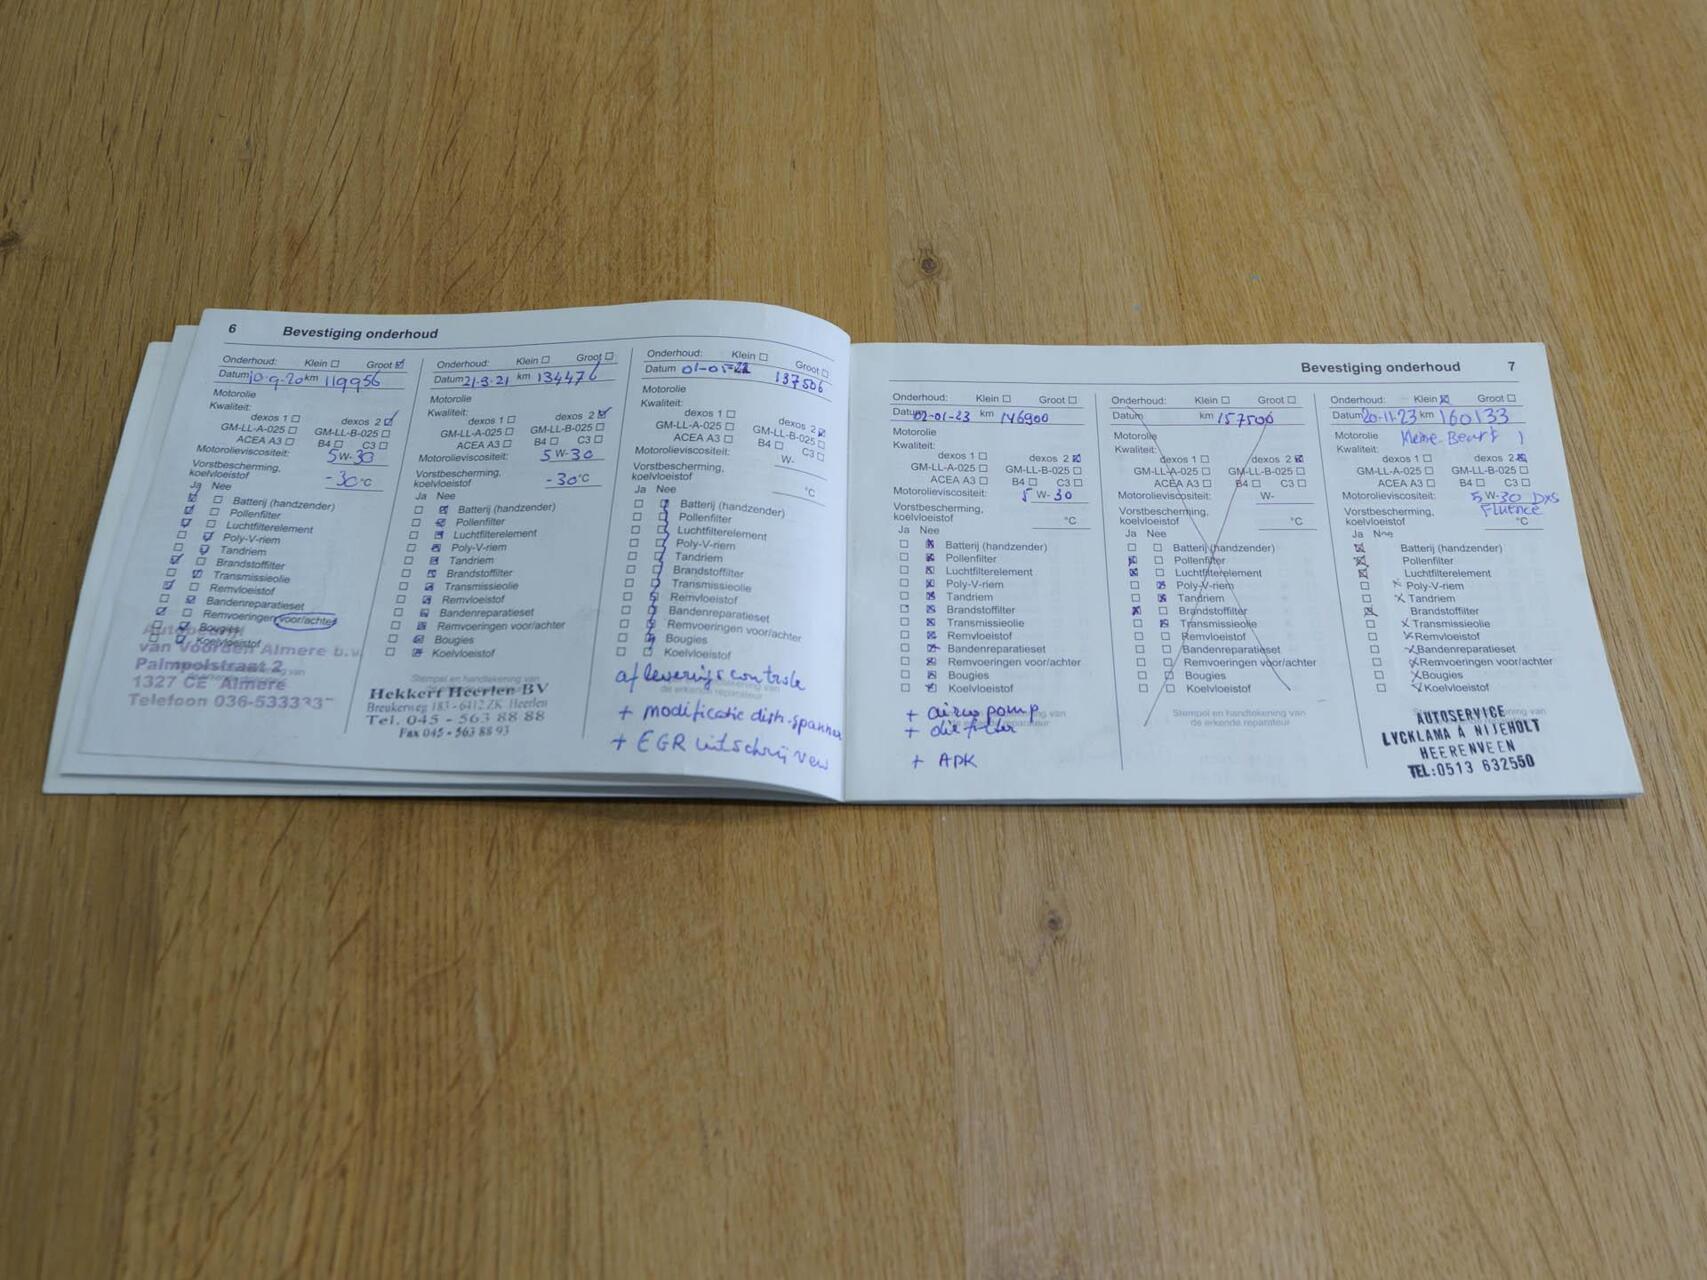 6 Bevestiging onderhoud
Onderhoud: Klein Groot
Datum 10-9-20 km 119956
Motorolie
Kwaliteit:
dexos 1 dexos 2
GM-LL-A-025 GM-LL-B-025
ACEA A3 B4 C3
Motorolieviscositeit: 5 W-30
Vorstbescherming,
koelvloeistof -30 °C
Ja Nee
Batterij (handzender)
Pollenfilter
Luchtfilterelement
Poly-V-riem
Tandriem
Brandstoffilter
Transmissieolie
Remvloeistof
Bandenreparatieset
Remvoeringen voor/achter
Bougies
Koelvloeistof
Autobedrijf
van Voorden Almere b.v.
Palmpolstraat 2
1327 CE Almere
Telefoon 036-533333
Onderhoud: Klein Groot
Datum 21-9-21 km 134476
Motorolie
Kwaliteit:
dexos 1 dexos 2
GM-LL-A-025 GM-LL-B-025
ACEA A3 B4 C3
Motorolieviscositeit: 5 W-30
Vorstbescherming,
koelvloeistof -30 °C
Ja Nee
Batterij (handzender)
Pollenfilter
Luchtfilterelement
Poly-V-riem
Tandriem
Brandstoffilter
Transmissieolie
Remvloeistof
Bandenreparatieset
Remvoeringen voor/achter
Bougies
Koelvloeistof
Stempel en handtekening van
Hekkert Heerlen BV
Breukerweg 183 - 6412 ZK Heerlen
Tel. 045 - 563 88 88
Fax 045 - 563 88 93
Onderhoud: Klein Groot
Datum 01-05-22 137506
Motorolie
Kwaliteit:
dexos 1 dexos 2
GM-LL-A-025 GM-LL-B-025
ACEA A3 B4 C3
Motorolieviscositeit: W-
Vorstbescherming,
koelvloeistof °C
Ja Nee
Batterij (handzender)
Pollenfilter
Luchtfilterelement
Poly-V-riem
Tandriem
Brandstoffilter
Transmissieolie
Remvloeistof
Bandenreparatieset
Remvoeringen voor/achter
Bougies
Koelvloeistof
afleverings controle
de erkende reparateur
+ modificatie distr.spanner
+ EGR uitschrijven
Bevestiging onderhoud 7
Onderhoud: Klein Groot
Datum 02-01-23 km 146900
Motorolie
Kwaliteit:
dexos 1 dexos 2
GM-LL-A-025 GM-LL-B-025
ACEA A3 B4 C3
Motorolieviscositeit: 5 W-30
Vorstbescherming,
koelvloeistof °C
Ja Nee
Batterij (handzender)
Pollenfilter
Luchtfilterelement
Poly-V-riem
Tandriem
Brandstoffilter
Transmissieolie
Remvloeistof
Bandenreparatieset
Remvoeringen voor/achter
Bougies
Koelvloeistof
+ airco pomp
+ oliefilter
+ APK
Onderhoud: Klein Groot
Datum km 157500
Motorolie
Kwaliteit:
dexos 1 dexos 2
GM-LL-A-025 GM-LL-B-025
ACEA A3 B4 C3
Motorolieviscositeit: W-
Vorstbescherming,
koelvloeistof °C
Ja Nee
Batterij (handzender)
Pollenfilter
Luchtfilterelement
Poly-V-riem
Tandriem
Brandstoffilter
Transmissieolie
Remvloeistof
Bandenreparatieset
Remvoeringen voor/achter
Bougies
Koelvloeistof
Stempel en handtekening van
de erkende reparateur
Onderhoud: Klein Groot
Datum 20-11-23 km 160133
Motorolie Kleine Beurt
Kwaliteit:
dexos 1 dexos 2
GM-LL-A-025 GM-LL-B-025
ACEA A3 B4 C3
Motorolieviscositeit: 5 W-30 DXS
Fluence
Vorstbescherming,
koelvloeistof °C
Ja Nee
Batterij (handzender)
Pollenfilter
Luchtfilterelement
Poly-V-riem
Tandriem
Brandstoffilter
Transmissieolie
Remvloeistof
Bandenreparatieset
Remvoeringen voor/achter
Bougies
Koelvloeistof
AUTOSERVICE
LYCKLAMA À NIJEHOLT
HEERENVEEN
TEL:0513 632550